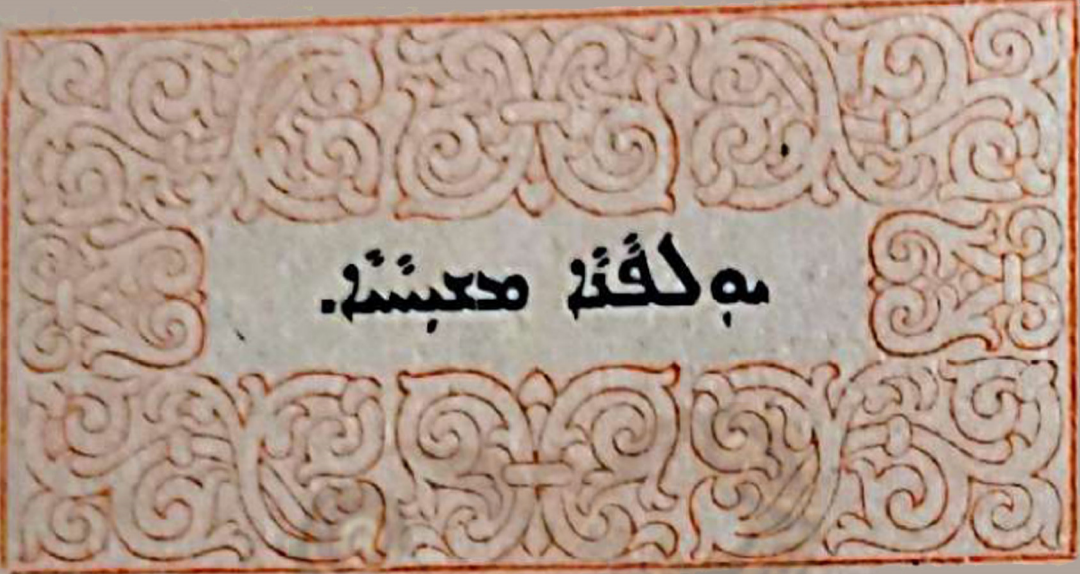 ܝܘܼܠܦܵܢܵܐ ܡܫܝܼܚܵܝܵܐ.